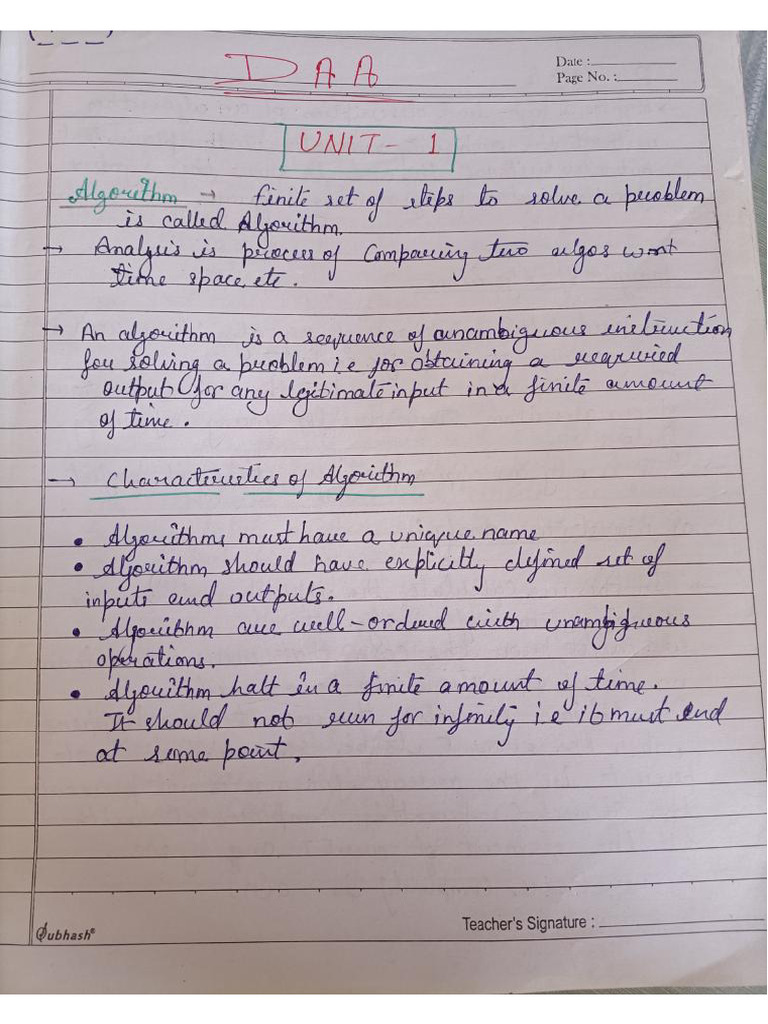 DAA
Date :
Page No. :
UNIT - 1
Algorithm → finite set of steps to solve a problem
is called Algorithm.
→ Analysis is process of Comparing two algos wrt
time space, etc.
→ An algorithm is a sequence of unambiguous instruction
for solving a problem i.e for obtaining a required
output for any legitimate input in a finite amount
of time.
→ Characteristics of Algorithm
• Algorithms must have a unique name
• Algorithm should have explicitly defined set of
inputs and outputs.
• Algorithm are well-ordered with unambiguous
operations.
• Algorithm halt in a finite amount of time.
It should not run for infinity i.e it must end
at some point.
Subhash®
Teacher's Signature :